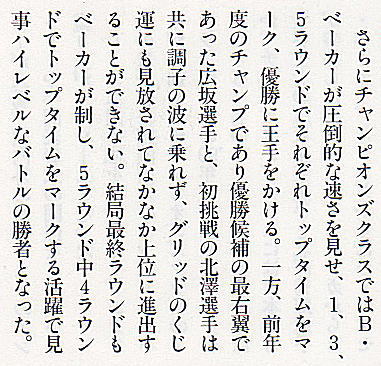 さらにチャンピオンズクラスではB・
ベーカーが圧倒的な速さを見せ、1、3、
5ラウンドでそれぞれトップタイムをマ
ーク、優勝に王手をかける。一方、前年
度のチャンプであり優勝候補の最右翼で
あった広坂選手と、初挑戦の北澤選手は
共に調子の波に乗れず、グリッドのくじ
運にも見放されてなかなか上位に進出す
ることができない。結局最終ラウンドも
ベーカーが制し、5ラウンド中4ラウン
ドでトップタイムをマークする活躍で見
事ハイレベルなバトルの勝者となった。